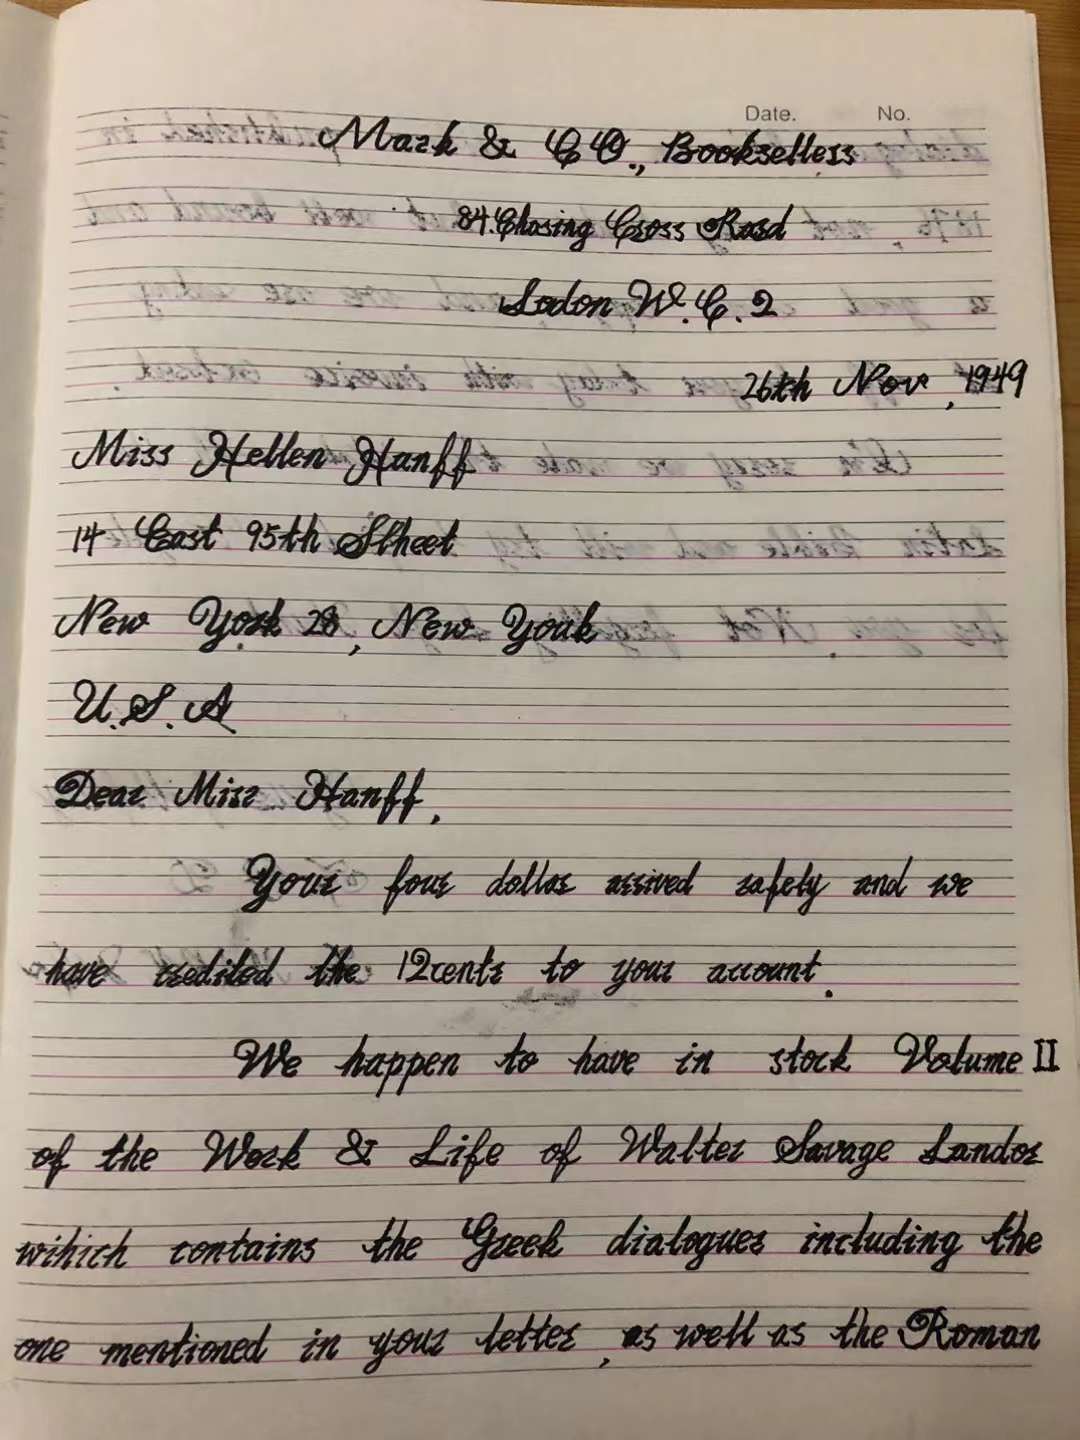 Date. No.
Mark & CO., Booksellers
84. Chasing Cross Road
Lodon W.C.2
26th Nov, 1949
Miss Hellen Hanff
14 East 95th Stheet
New York 28, New Yoak
U.S.A
Dear Miss Hanff,
Your four dollar arrived safely and we
have credited the 12cents to your account.
We happen to have in stock Volume II
of the Work & Life of Walter Savage Landor
wihich contains the Greek dialogues including the
one mentioned in your letter, as well as the Roman